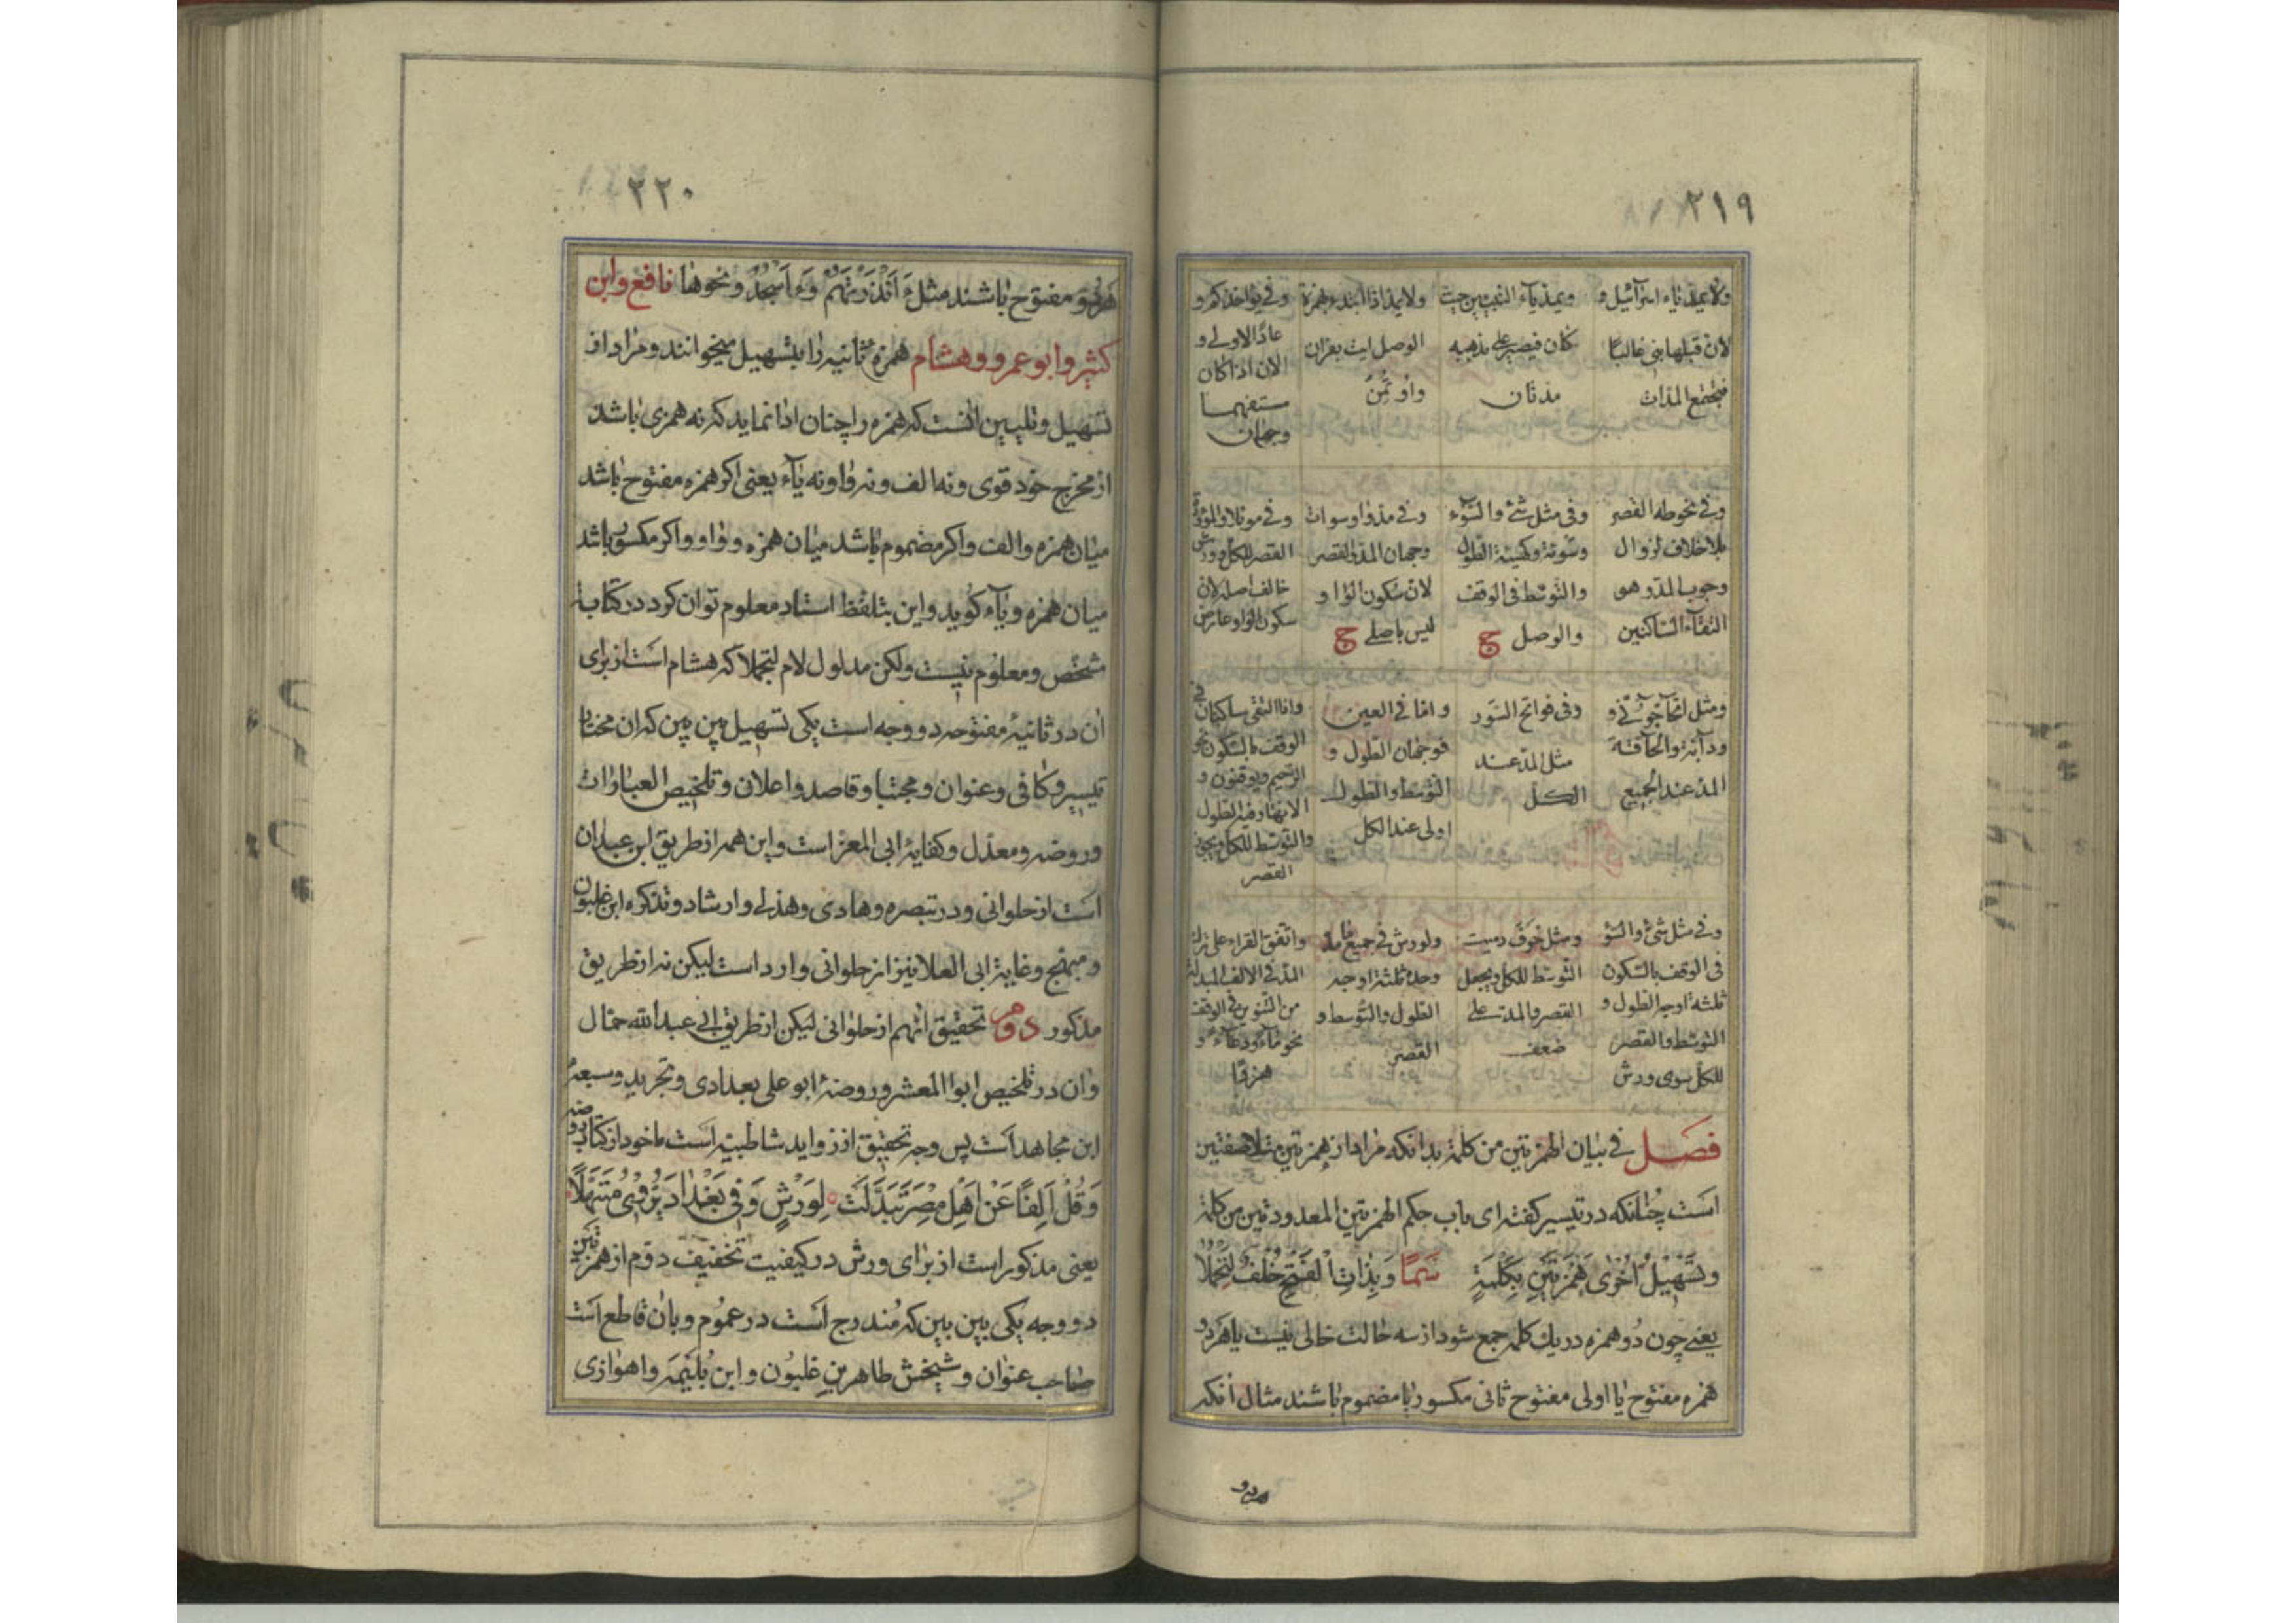 ٢١٩
ولا يمد ياء اسرآئيل و
لان قبلها بنى غالبًا
فيجتمع المدات
ويمد ياء النبيين حيث
كان فيصير على مذهبه
مدتان
ولا يمد اذا ابتدء بهمزة
الوصل ايت بقران
واؤتمن
وفي يؤاخذكم و
عادًا الاولى و
الان اذا كان
مستفهما
وجهان
وفي نحو طه القصر
بلا خلاف لزوال
وجوب المد و هو
التقآء الساكنين
وفى مثل شئ والسّوء
وسوئة وكهيئة الطول
والتوسّط فى الوقف
والوصل ج
وفى مد واو سوات
وجهان المد والقصر
لان سكون الواو
ليس باصلى ج
وفى موئلا والمؤدة
القصر للكل وورش
خالف اصله لان
سكون الواو عارض
ومثل اتحآجّونّي و
ودآبّة والحآقّة
المدّ عند الجميع
وفى فواتح السّور
مثل المدّ عند
الكل
وامّا في العين
فوجهان الطول و
التوسّط والطول
اولى عند الكل
واذا التقى ساكنان فى
الوقف بالسكون نحو
الرّحيم ويوقنون و
الانهار فيه الطول
والتوسّط للكل ويجئ
القصر
وفى مثل شئ والسّوء
فى الوقف بالسّكون
ثلثة اوجه الطول و
التوسّط والقصر
للكل سوى ورش
ومثل خوف وميت
التوسّط للكل ويجعل
القصر والمدّ على
ضعف
ولورش في جميع ما مدّ
وحده ثلثة اوجه
الطول والتّوسّط و
القصر
واتّفق القراء على ترك
المدّ فى الالف المبدلة
من التنوين فى الوقف
نحو مآءً ودعآءً و
هزوًا
فصل في بيان الهمزتين من كلمة بدانكه مراد از همزتين متلاصقتين
است چنانكه در تيسير كفته اى باب حكم الهمزتين المعدودتين من كلمة
وَتَسْهِيْلُ اُخْرٰى هَمْزَتَيْنِ بِكِلْمَةٍ سَمَا وَبِذَاتِ الْفَتْحِ خُلْفٌ لِتَجْمُلَا
يعنى چون دو همزه در يك كلمه جمع شود از سه حالت خالى نيست يا هر دو
همزه مفتوح يا اولى مفتوح ثانى مكسور يا مضموم باشند مثال آنكه
هر دو
٢٢٠
هر دو مفتوح باشند مثل ءَاَنْذَرْتَهُمْ وَءَاَسْجُدُ ونحوها نافع وابن
كثير وابو عمرو وهشام همزهٔ ثانيه را بتسهيل ميخوانند ومراد از
تسهيل وتليين آنست كه همزه را چنان ادا نمايد كه نه همزى باشد
از مخرج خود قوى ونه الف ونه واو نه يآء يعنى اكر همزه مفتوح باشد
ميان همزه والف واكر مضموم باشد ميان همزه وواو واكر مكسور باشد
ميان همزه ويآء كويد واين بتلفظ استاد معلوم توان كرد در كتابة
مشخص ومعلوم نيست ولكن مدلول لام لتجملا كه هشام است از براى
آن در ثانيهٔ مفتوحه دو وجه است يكى تسهيل بين بين كه آن مختار
تيسير وكافى وعنوان ومجتبا وقاصد واعلان وتلخيص العبارات
وروضه ومعدّل وكفايهٔ ابى العز است واين همه از طريق ابن عبدان
است از حلوانى ودر تبصره وهادى وهذلى وارشاد وتذكره ابن غلبون
ومبهج وغاية ابى العلا نيز از حلوانى وارد است ليكن نه از طريق
مذكور دوم تحقيق آنهم از حلوانى ليكن از طريق ابى عبدالله جمّال
وآن در تلخيص ابوا المعشر وروضهٔ ابو على بغدادى وتجريد وسبعهٔ
ابن مجاهد است پس وجه تحقيق از زوايد شاطبيه است ماخود از كتاب روضه
وَقُلْ اَلِفًا عَنْ اَهْلِ مِصْرَ تَبَدَّلَتْ لِوَرْشٍ وَفِى بَغْدَادَ يُرْوٰى مُسَهَّلًا
يعنى مذكور است از براى ورش در كيفيت تخفيف دوّم از همزتين
دو وجه يكى بين بين كه مندرج است در عموم وبان قاطع است
صاحب عنوان وشيخش طاهر بن غلبون وابن بليمه واهوازى